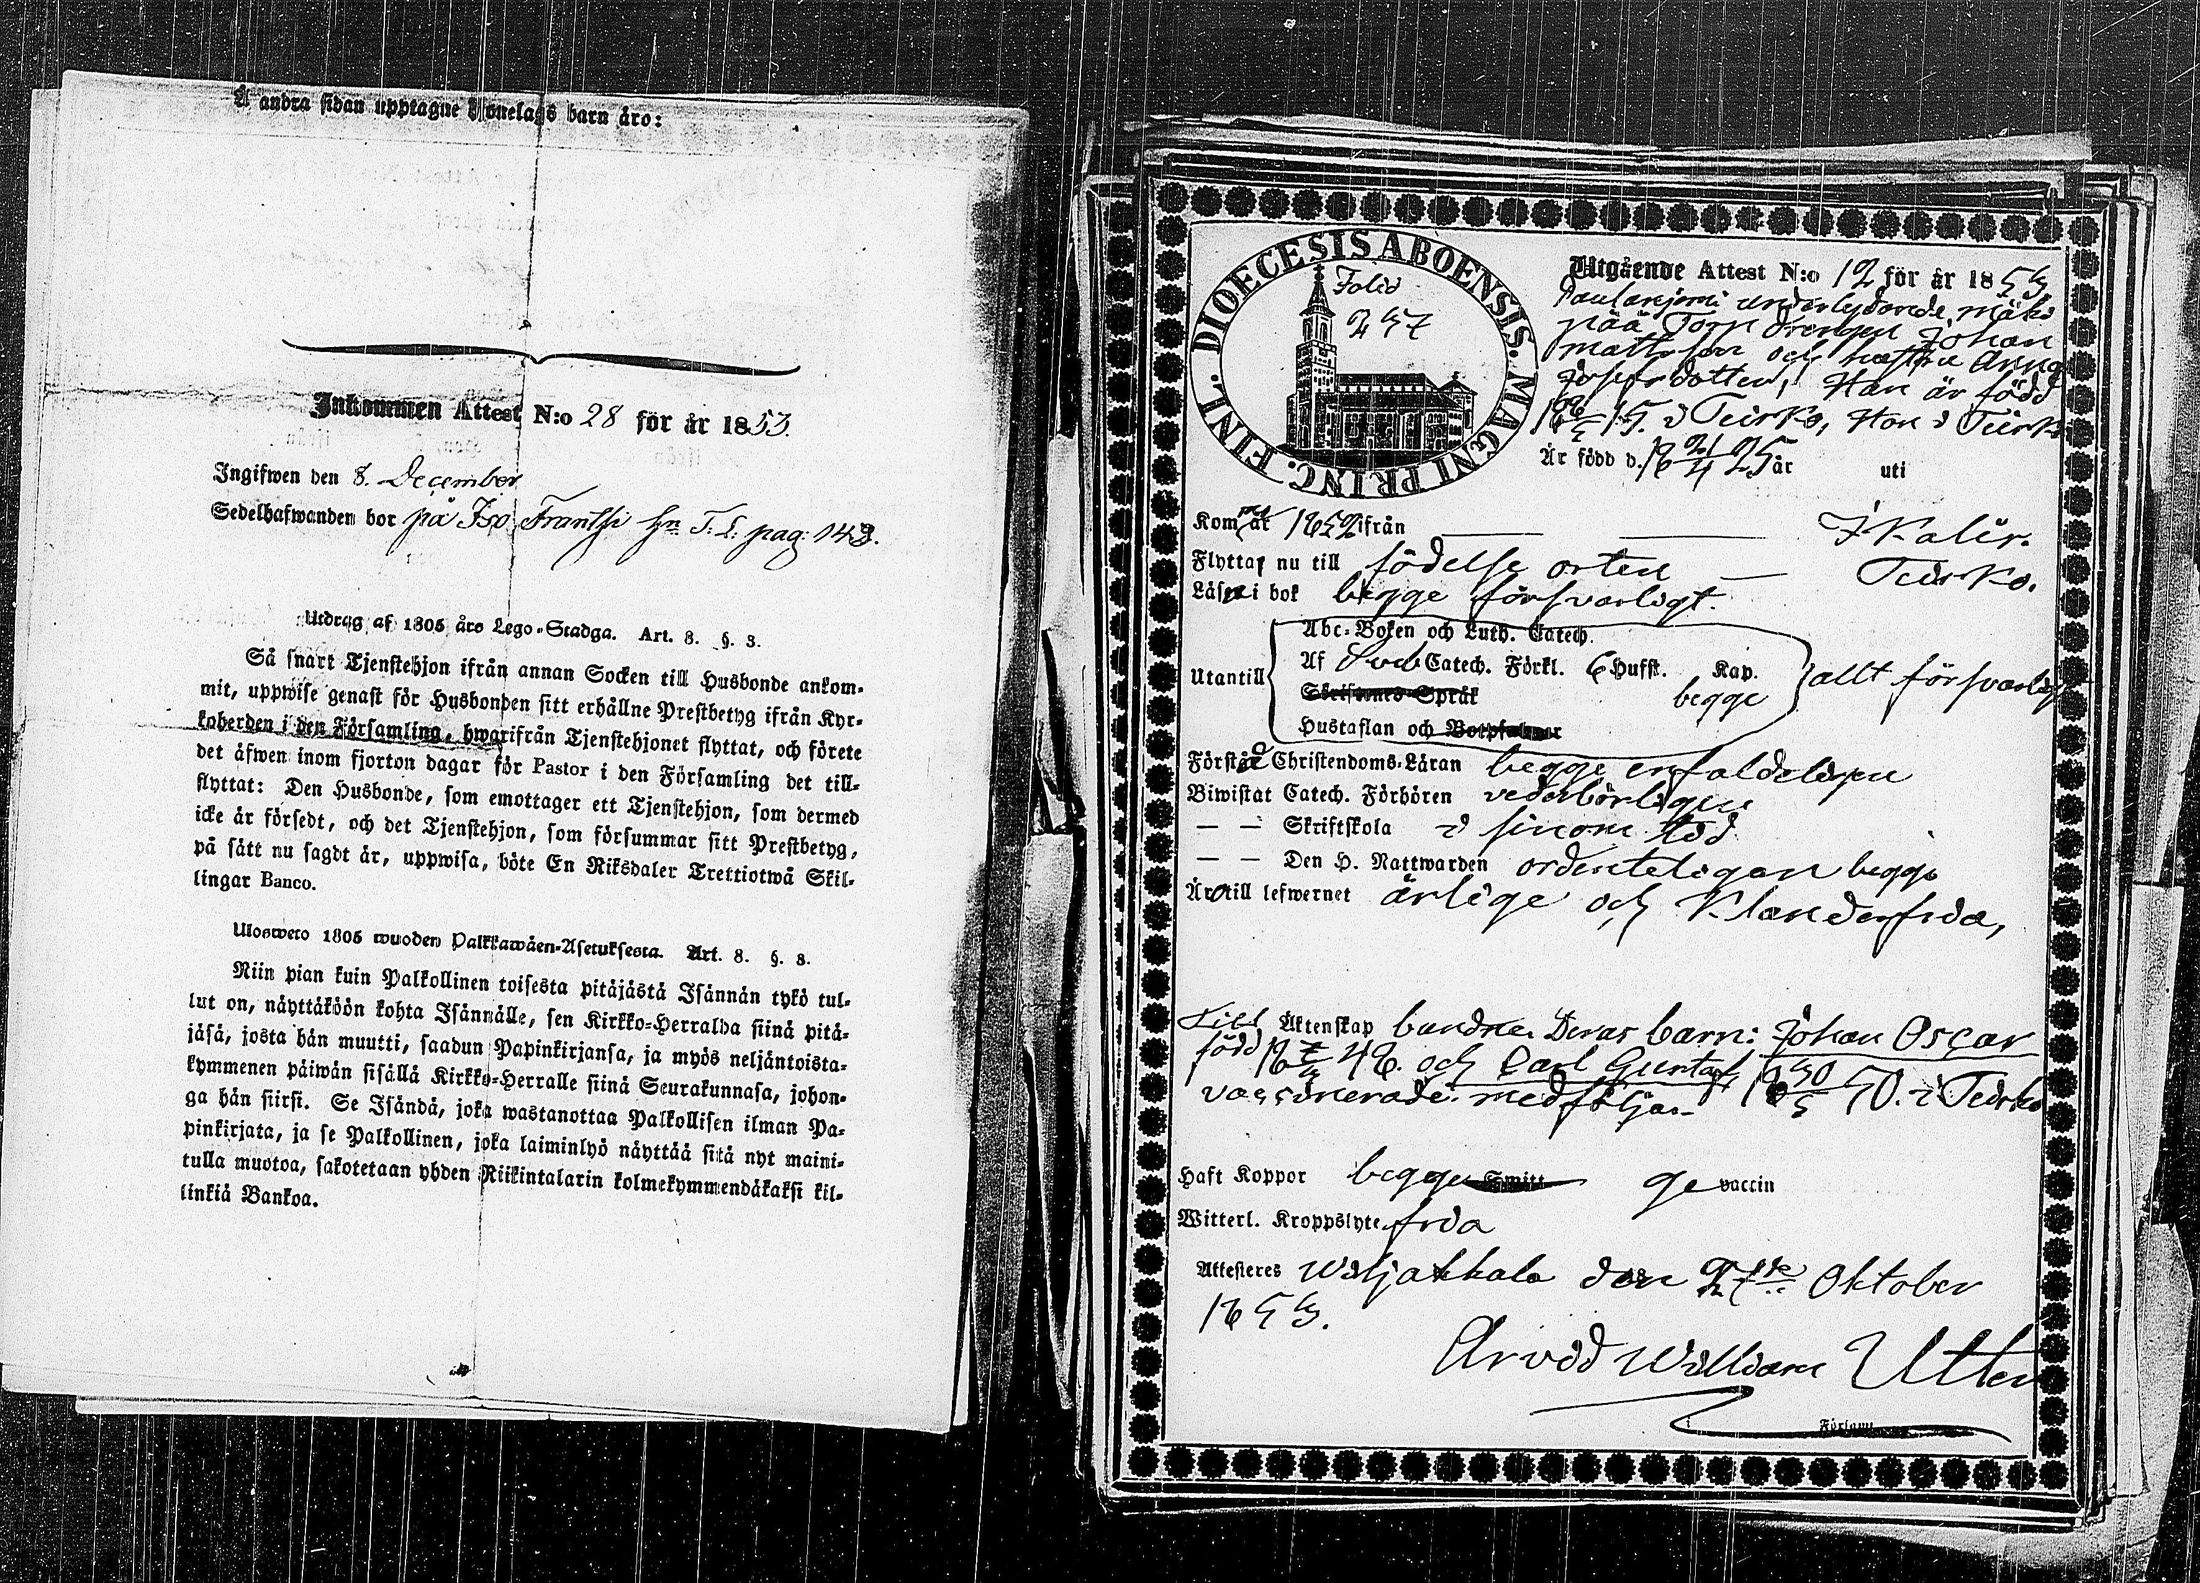 Å andra sidan upptagne Hjonelags barn äro:
Inkommen Attest N:o 28 för år 1853.
Ingifwen den 8. December
Sedelhafwanden bor på Iso Frantsi hn T. L. pag: 143.
Utdrag af 1805 års Lego-Stadga. Art. 8. §. 3.
Så snart Tjenstehjon ifrån annan Socken till Husbonde ankom-
mit, uppwise genast för Husbonden sitt erhållne Prestbetyg ifrån Kyr-
koherden i den Församling, hwarifrån Tjenstehjonet flyttat, och förete
det äfwen inom fjorton dagar för Pastor i den Församling det till-
flyttat: Den Husbonde, som emottager ett Tjenstehjon, som dermed
icke är försedt, och det Tjenstehjon, som försummar sitt Prestbetyg,
på sätt nu sagdt är, uppwisa, böte En Riksdaler Trettiotwå Skil-
lingar Banco.
Ulosweto 1805 wuoden Palkkawäen-Asetuksesta. Art. 8. §. 3.
Niin pian kuin Palkollinen toisesta pitäjästä Isännän tykö tul-
lut on, näyttäköön kohta Isännälle, sen Kirkko-Herralda siinä pitä-
jäsä, josta hän muutti, saadun Papinkirjansa, ja myös neljäntoista-
kymmenen päiwän sisällä Kirkko-Herralle siinä Seurakunnasa, johon-
ga hän siirsi. Se Isändä, joka wastanottaa Palkollisen ilman Pa-
pinkirjata, ja se Palkollinen, joka laiminlyö näyttää sitä nyt maini-
tulla muotoa, sakotetaan yhden Riikintalarin kolmekymmendäkaksi kil-
linkiä Bankoa.
DIOECESIS ABOENSIS. MAGNI PRINC. FINL.
Folio
257
Utgående Attest N:o 12 för år 1853
underlydande mäki
pää Torp Drengen Johan
Mattsson och hustru Anna
Josefsdotter, Han är född
15. i Teisko, Hon i Teisko
Är född d. 18 21/4 25 år uti
Kommer 1852 ifrån Ikalis.
Flyttar nu till födelse orten Teisko.
Läser i bok begge försvarligt.
Abc-Boken och Luth. Catech.
Utantill Af Sveb Catech. Förkl. 6 Hufst. Kap. allt försvarligt
Skriftenes Språk begge
Hustaflan och Botpsalmer
Förstår Christendoms-Läran begge enfaldeligen
Biwistat Catech. Förhören vederbörligen
— — Skriftskola i sinom tid
— — Den H. Nattwarden ordenteligen begge
Äro till lefwernet ärlige och klanderfria,
Till Äktenskap bundne. Deras barn: Johan Oscar
född 48. och Carl Gustaf, 18 30/5 50. i Teisko
vaccinerade medfölja
Haft Koppor begge Smitt ge vaccin
Witterl. Kroppslyte fria
Attesteres Wiljakkala den 27de Oktober
1853.
Arvid William Utter
Församl.